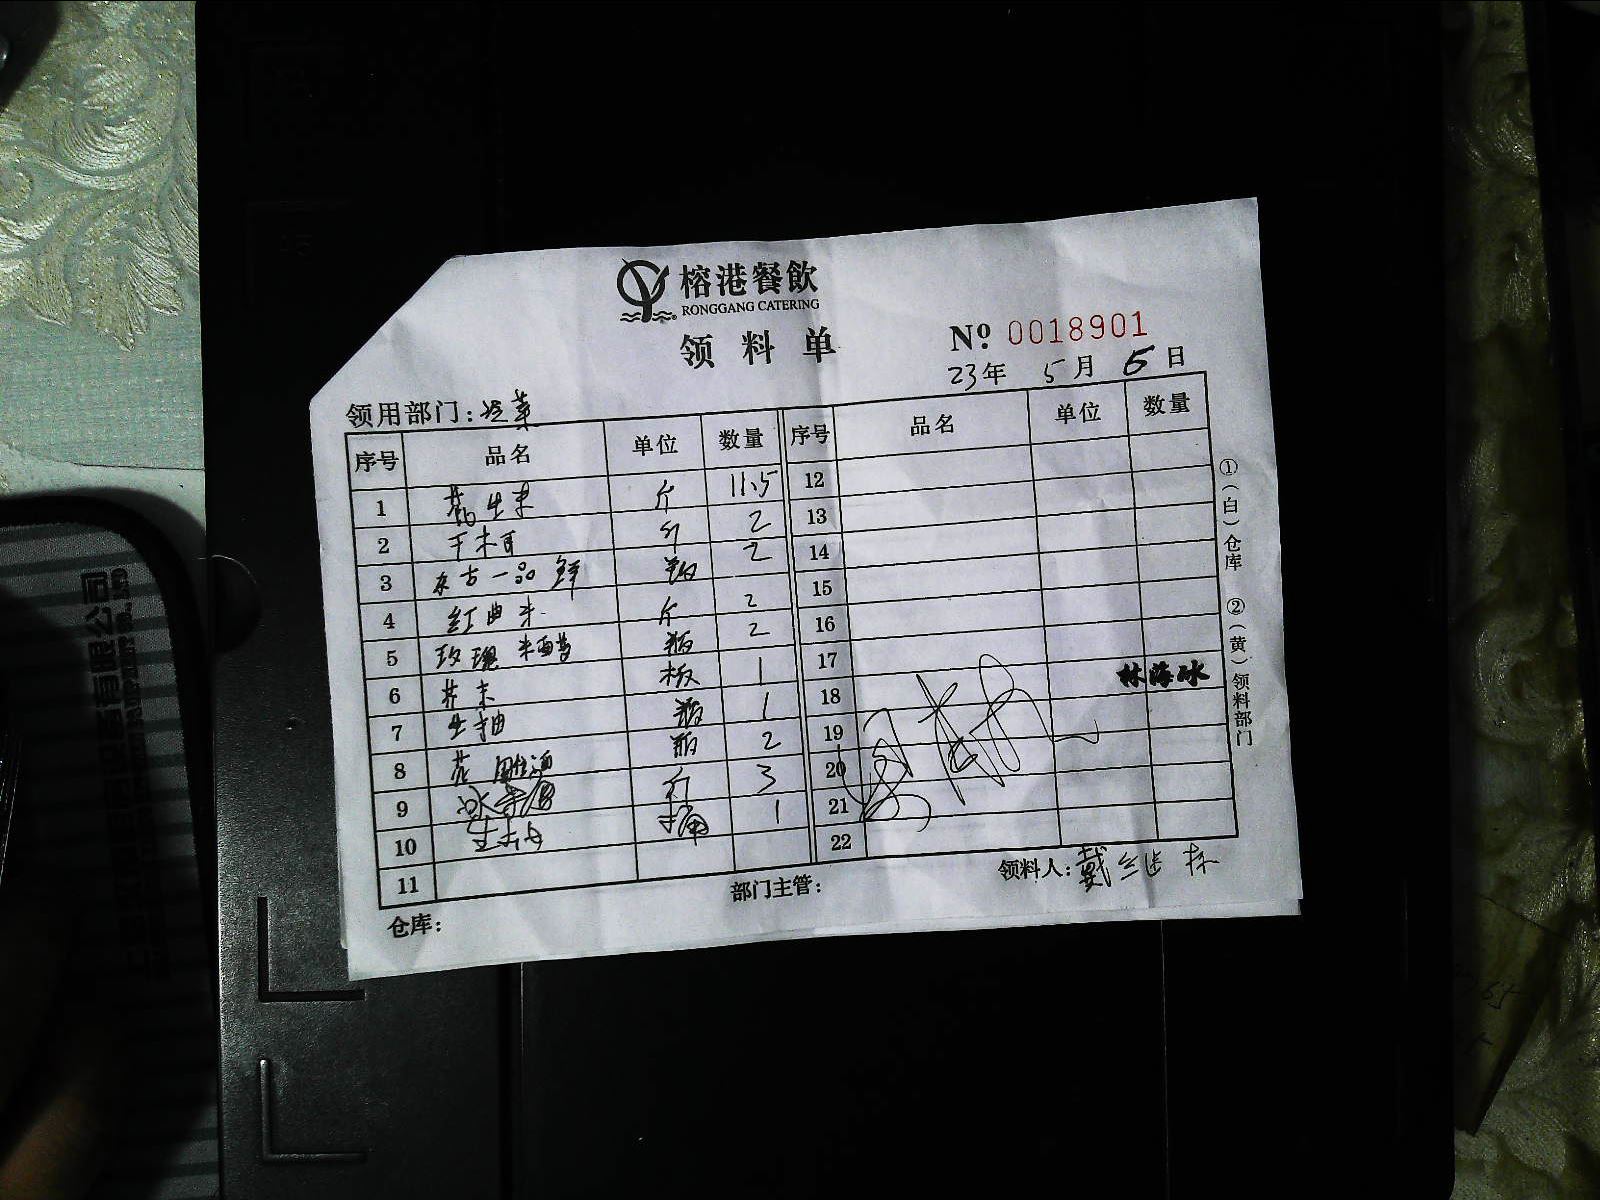 榕港餐飲
RONGGANG CATERING
领料单
№ 0018901
23年 5月 6日
领用部门: 冷菜
序号 品名 单位 数量 序号 品名 单位 数量
1 花生米 斤 11.5 12
2 干木耳 斤 2 13
3 东古一品鲜 瓶 2 14
4 红曲米 斤 2 15
5 玫瑰米醋 瓶 2 16
6 芥末 板 1 17
7 生抽 瓶 1 18
8 花雕酒 瓶 2 19
9 冰糖 斤 3 20
10 桶 1 21
11 22
林海冰
仓库: 部门主管: 领料人: 戴 林
①(白)仓库 ②(黄)领料部门
有限公司